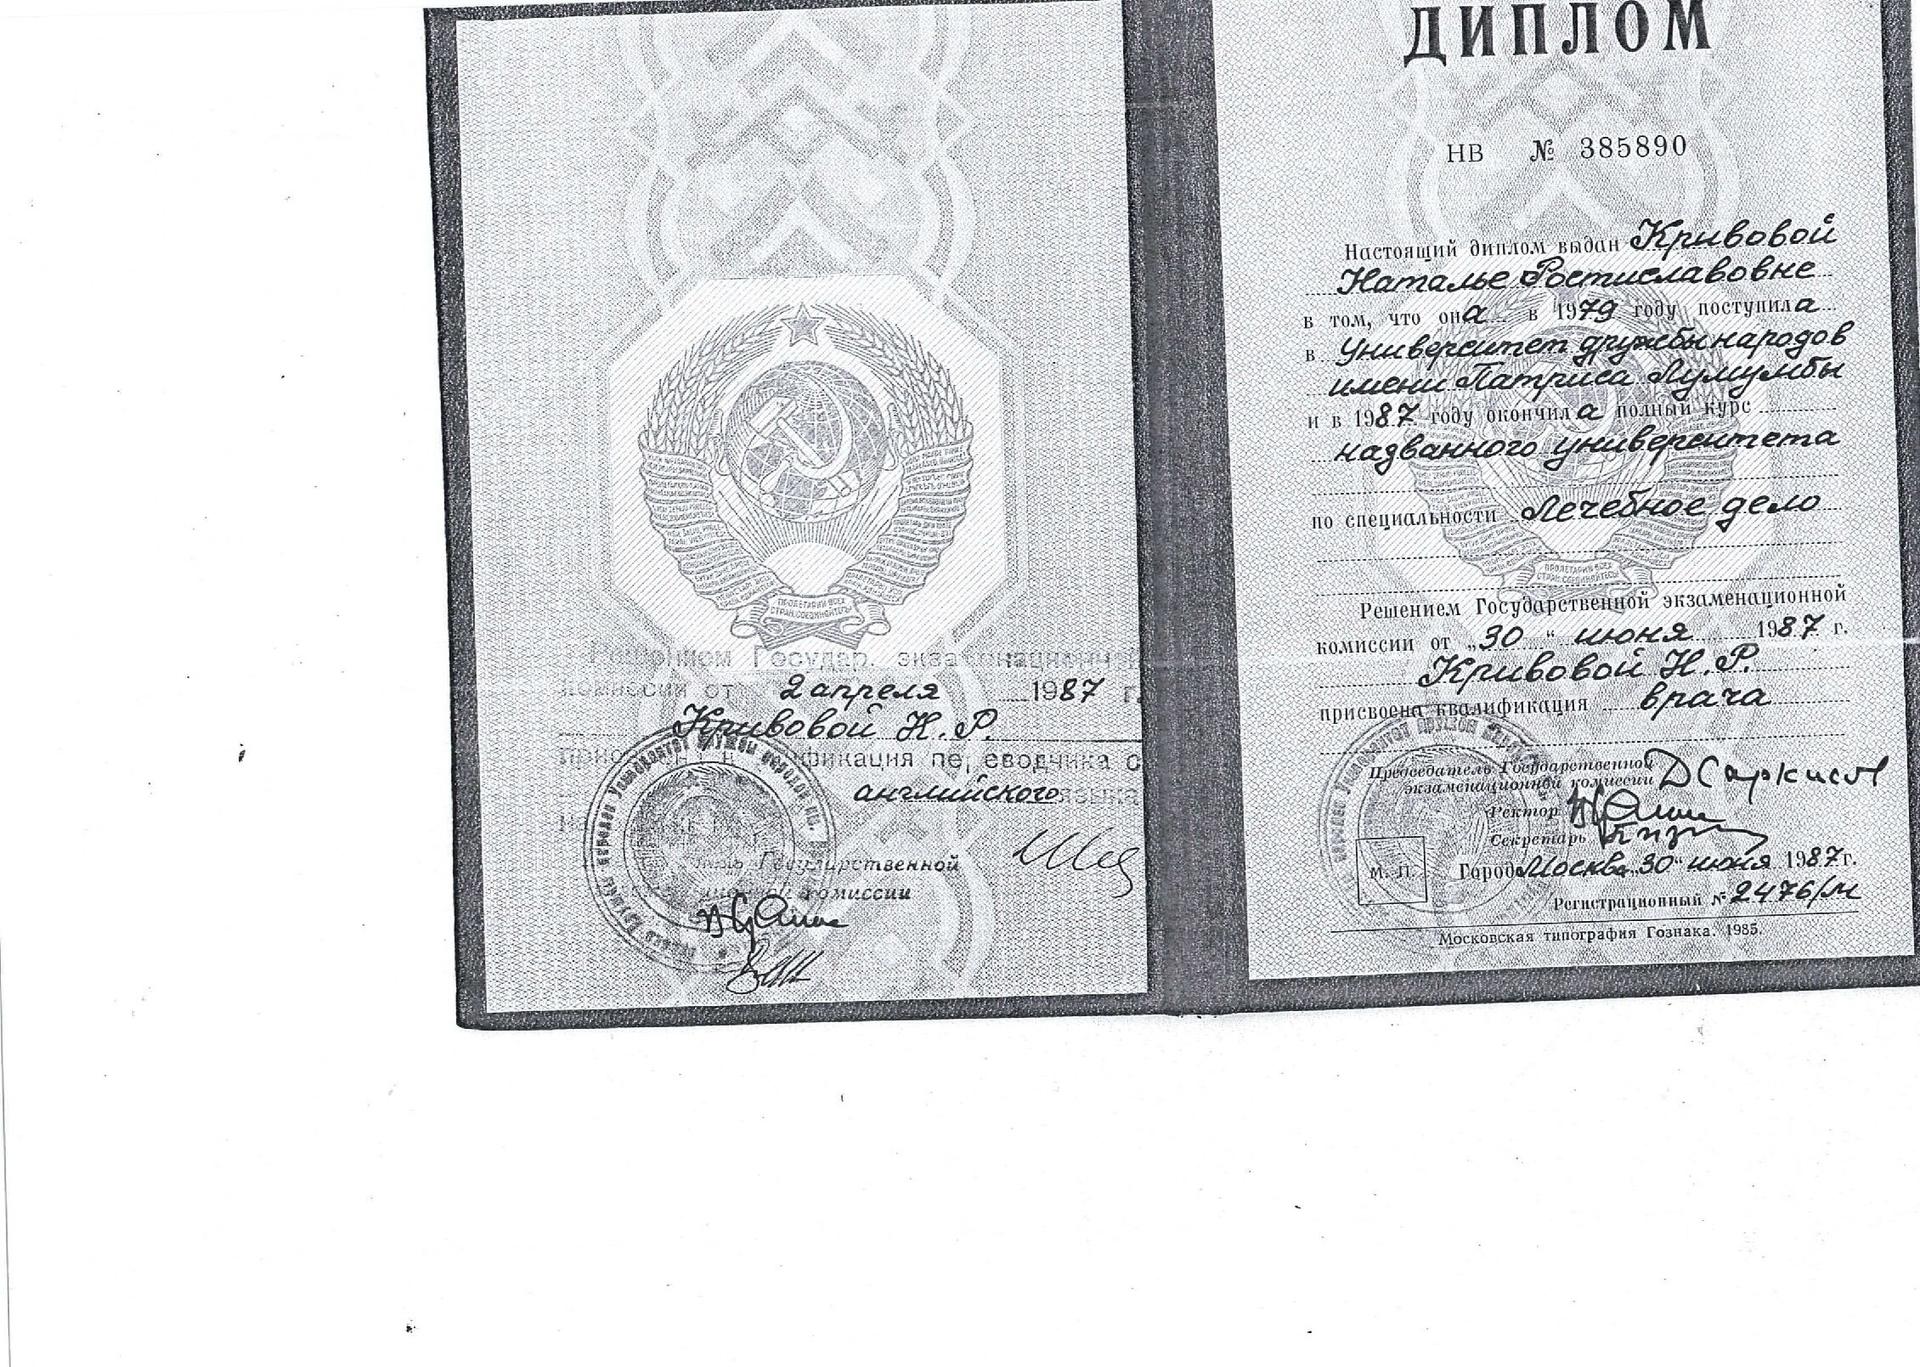 ПРОЛЕТАРИИ ВСЕХ
СТРАН, СОЕДИНЯЙТЕСЬ!
Решением Государ. экзаменационн
комиссии от 2 апреля 1987 г.
Кривовой Н. Р.
присвоена квалификация переводчика с
английского языка
Государственной
комиссии
ДИПЛОМ
НВ № 385890
Настоящий диплом выдан Кривовой
Наталье Ростиславовне
в том, что она в 1979 году поступила
в Университет дружбы народов
имени Патриса Лумумбы
и в 1987 году окончила полный курс
названного университета
по специальности Лечебное дело
ПРОЛЕТАРИИ ВСЕХ
СТРАН, СОЕДИНЯЙТЕСЬ!
Решением Государственной экзаменационной
комиссии от „30“ июня 1987 г.
Кривовой Н. Р.
присвоена квалификация врача
Председатель Государственной
экзаменационной комиссии
Ректор
Секретарь
М. П.
Город Москва „30“ июня 1987 г.
Регистрационный № 2476/М
Московская типография Гознака. 1985.